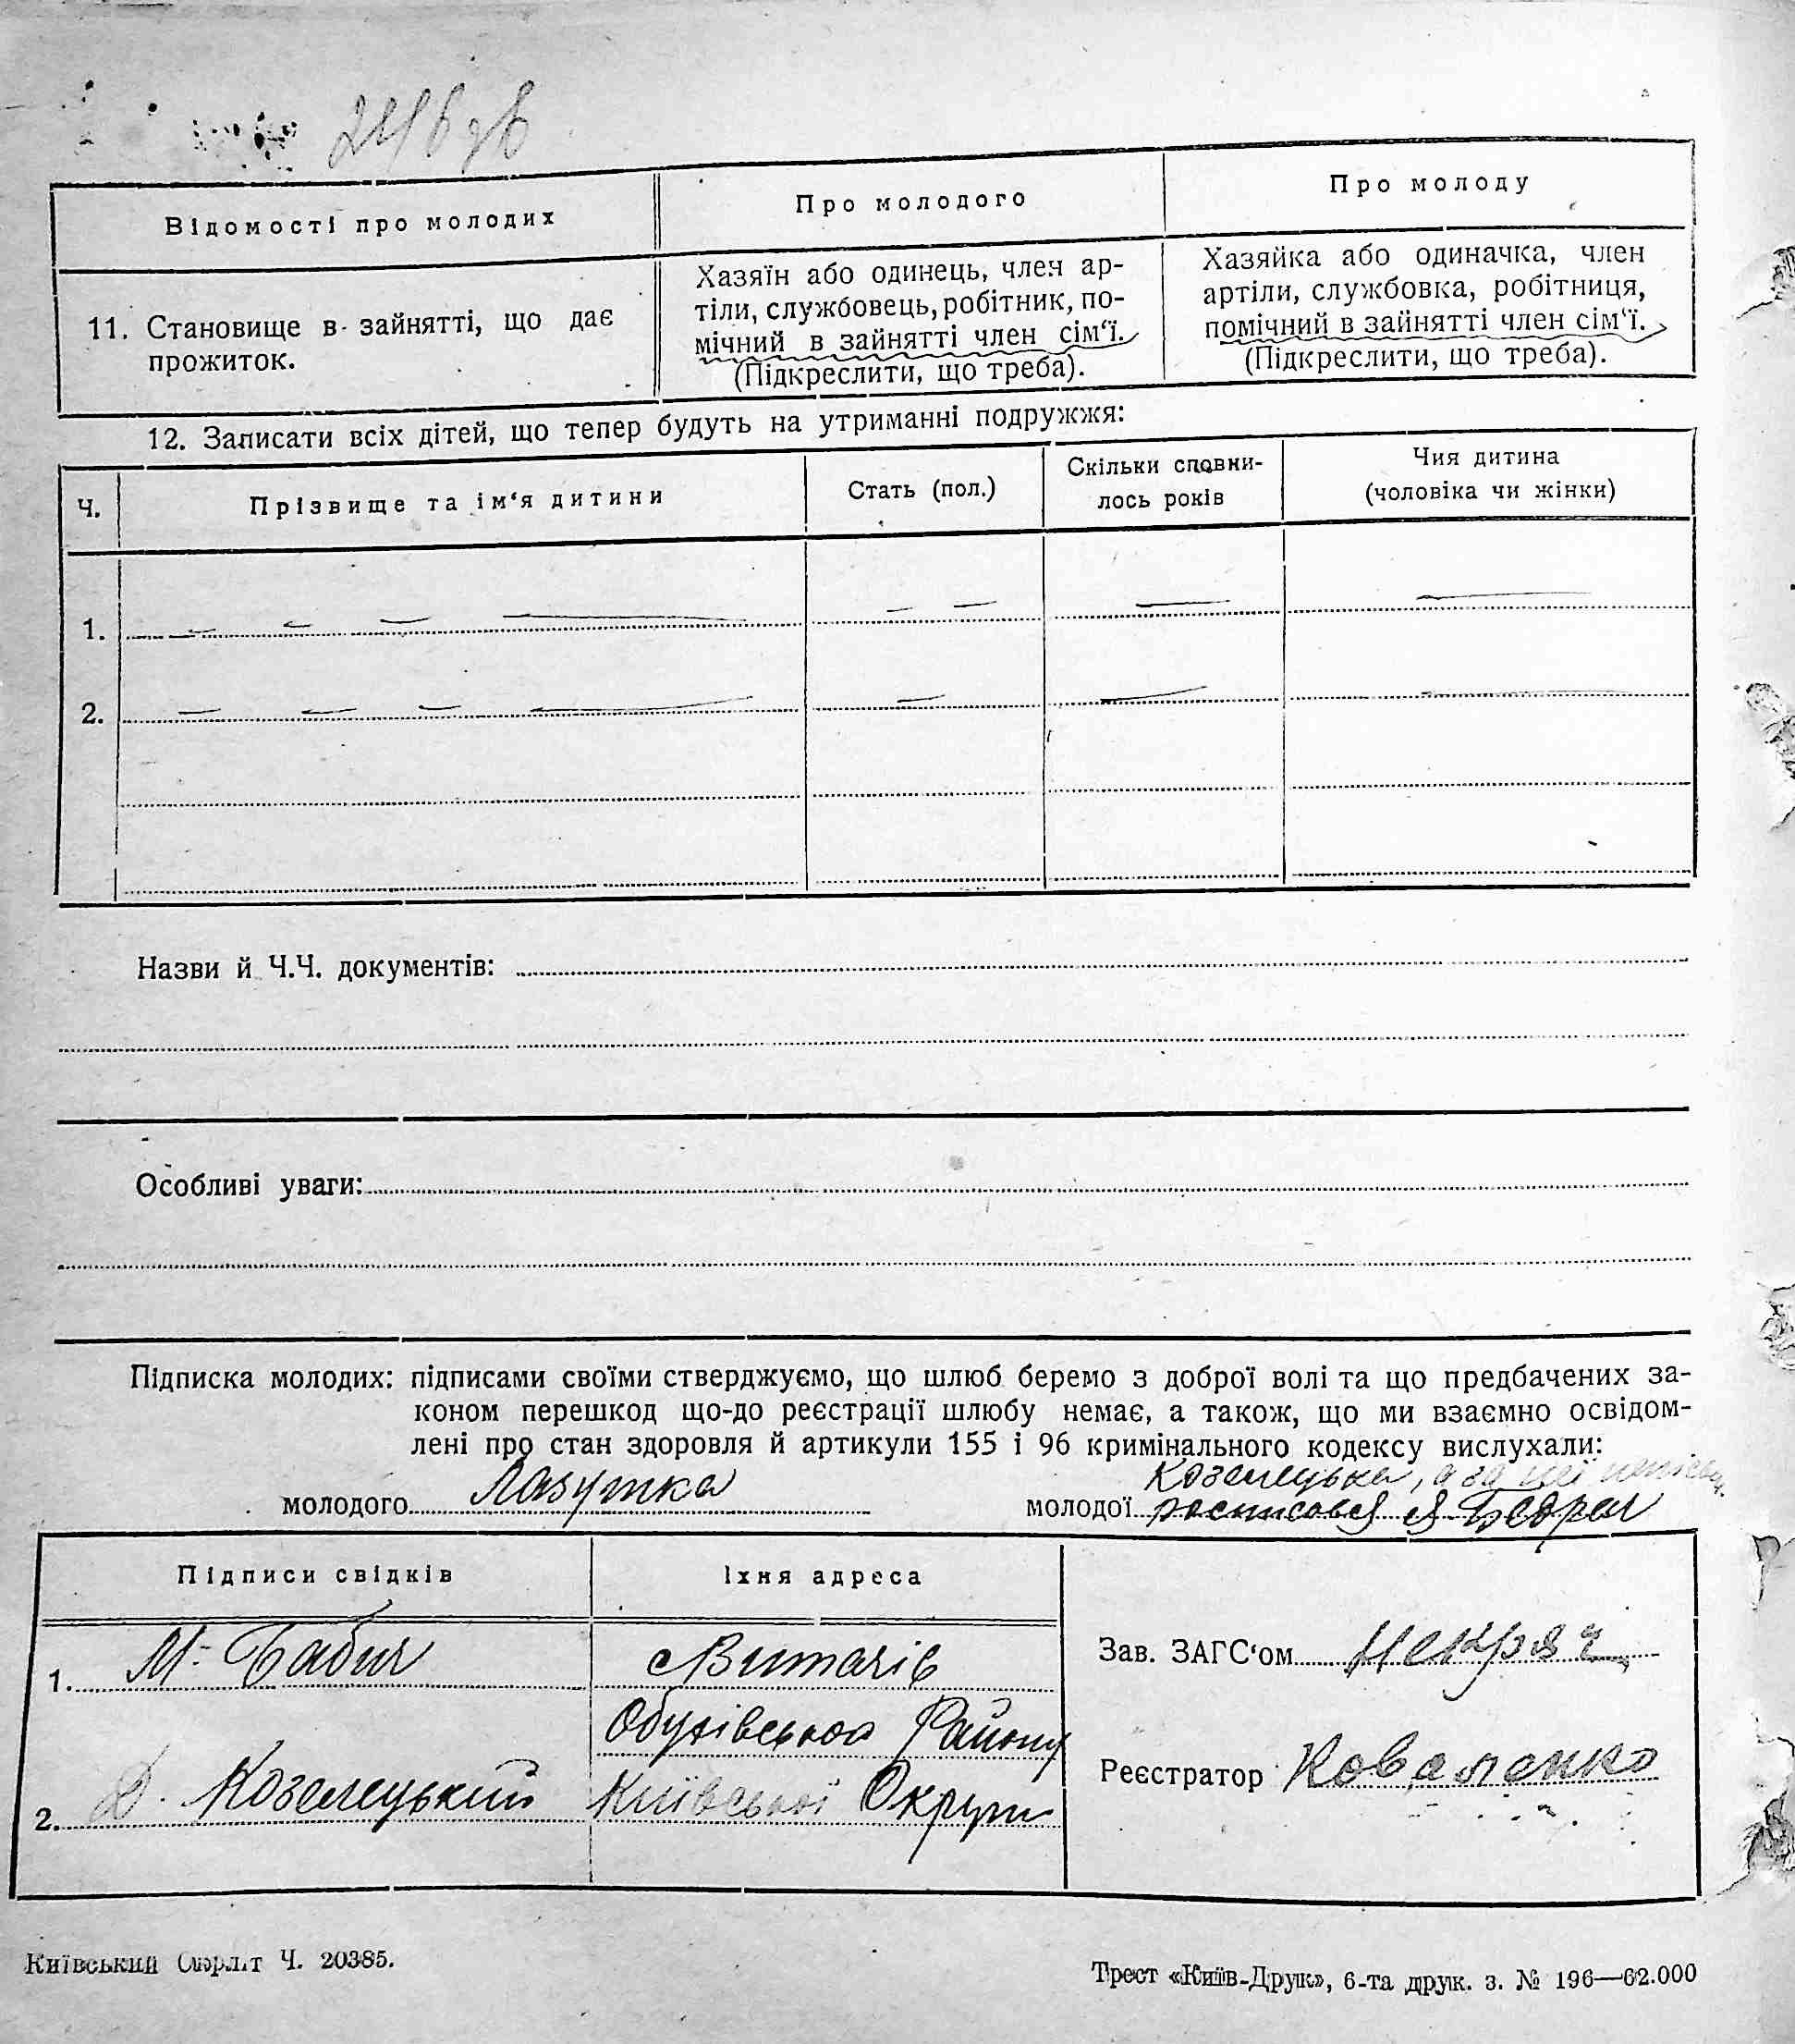 Відомості про молодих
Про молодого
Про молоду
11. Становище в зайнятті, що дає
прожиток.
Хазяїн або одинець, член ар-
тіли, службовець, робітник, по-
мічний в зайнятті член сім‘ї.
(Підкреслити, що треба).
Хазяйка або одиначка, член
артіли, службовка, робітниця,
помічний в зайнятті член сім‘ї.
(Підкреслити, що треба).
12. Записати всіх дітей, що тепер будуть на утриманні подружжя:
Ч.
Прізвище та ім‘я дитини
Стать (пол.)
Скільки сповни-
лось років
Чия дитина
(чоловіка чи жінки)
1.
2.
Назви й Ч.Ч. документів:
Особливі уваги:
Підписка молодих: підписами своїми стверджуємо, що шлюб беремо з доброї волі та що предбачених за-
коном перешкод що-до реєстрації шлюбу немає, а також, що ми взаємно освідом-
лені про стан здоровля й артикули 155 і 96 кримінального кодексу вислухали:
молодого Лазутка
Козелецька, а за неї
молодої росписався Я. Бедрач
Підписи свідків
Їхня адреса
1. М. Бабич
с Витачів
Обухівського Району
2. Д. Козелецький
Київської Округи
Зав. ЗАГС‘ом Некряч
Реєстратор Коваленко
Київський Окрліт Ч. 20385.
Трест «Київ-Друк», 6-та друк. з. № 196—62.000